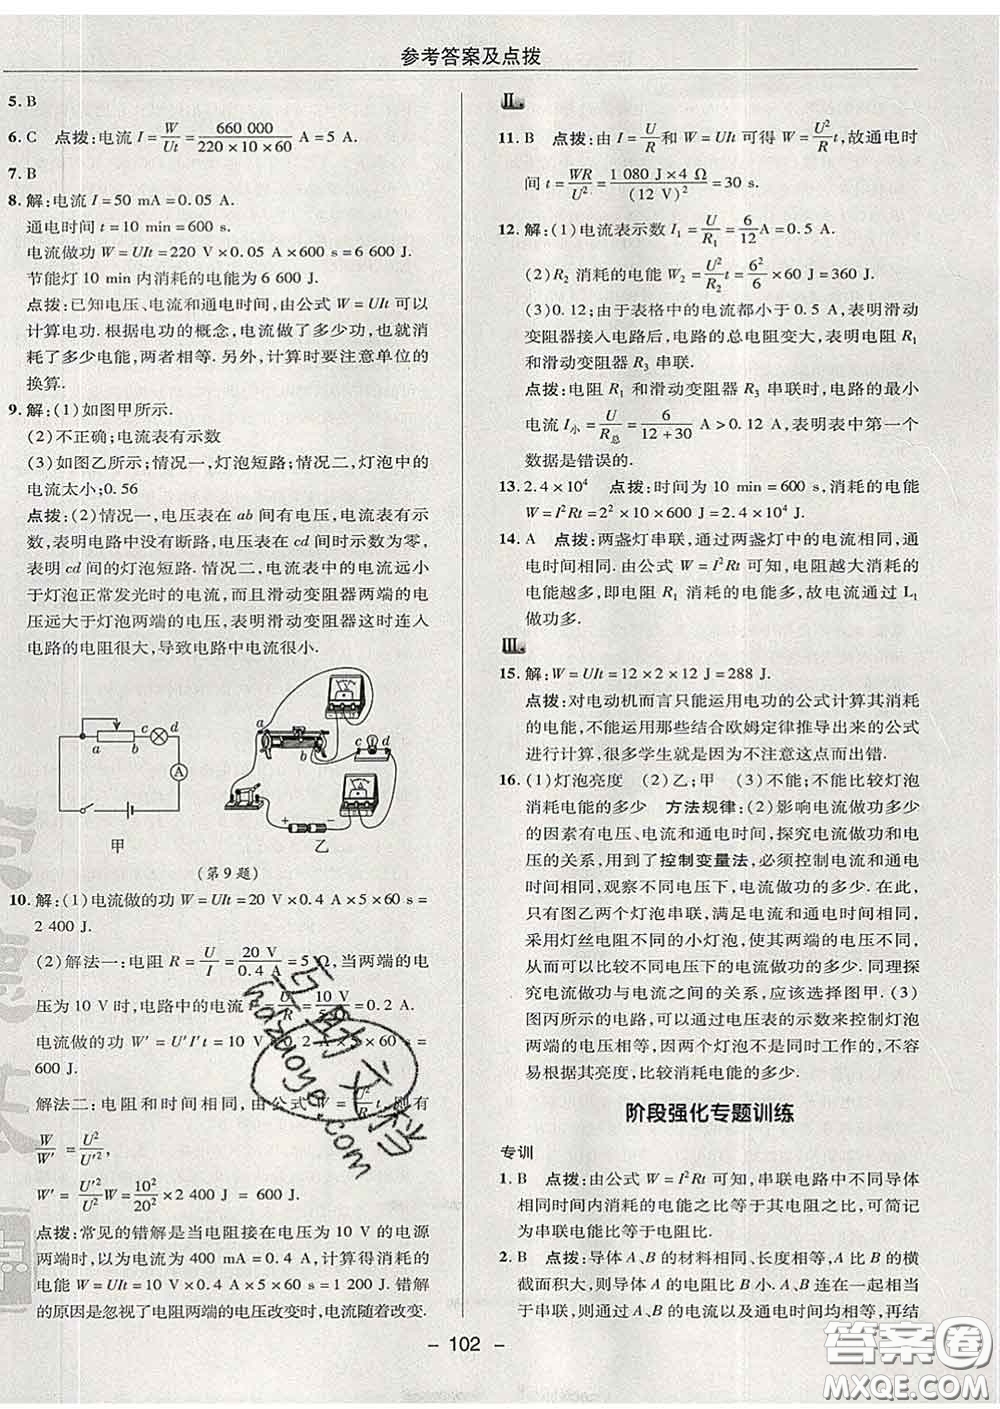 参考答案及点拨
5. B
6. C 点拨:电流 I = W/Ut = 660 000/(220×10×60) A = 5 A.
7. B
8. 解:电流 I = 50 mA = 0.05 A.
通电时间 t = 10 min = 600 s.
电流做功 W = UIt = 220 V×0.05 A×600 s = 6 600 J.
节能灯 10 min 内消耗的电能为 6 600 J.
点拨:已知电压、电流和通电时间,由公式 W = UIt 可以
计算电功. 根据电功的概念,电流做了多少功,也就消
耗了多少电能,两者相等. 另外,计算时要注意单位的
换算.
9. 解:(1)如图甲所示.
(2)不正确;电流表有示数
(3)如图乙所示;情况一,灯泡短路;情况二,灯泡中的
电流太小;0.56
点拨:(2)情况一,电压表在 ab 间有电压,电流表有示
数,表明电路中没有断路,电压表在 cd 间时示数为零,
表明 cd 间的灯泡短路. 情况二,电流表中的电流远小
于灯泡正常发光时的电流,而且滑动变阻器两端的电
压远大于灯泡两端的电压,表明滑动变阻器这时连入
电路的电阻很大,导致电路中电流很小.
a b c d
A
甲
a b c d
+ −
乙
(第 9 题)
10. 解:(1)电流做的功 W = UIt = 20 V×0.4 A×300 s =
2 400 J.
(2)解法一:电阻 R = U/I = 20 V/0.4 A = 5 Ω,当两端的电
压为 10 V 时,电路中的电流 = U/R = 10 V = 0.2 A.
电流做的功 W′ = U′I′t = 10 V×0.2 A×300 s =
600 J.
解法二:电阻和时间相同,由公式 W = U²/R t,则有
W/W′ = U²/U′²,
W′ = U′²/U² W = 10²/20² × 2 400 J = 600 J.
点拨:常见的错解是当电阻接在电压为 10 V 的电源
两端时,以为电流为 400 mA = 0.4 A,计算得消耗的
电能 W = UIt = 10 V×0.4 A×300 s = 1 200 J. 错解
的原因是忽视了电阻两端的电压改变时,电流随着改变.
Ⅱ.
11. B 点拨:由 I = U/R 和 W = UIt 可得 W = U²/R t,故通电时
间 t = WR/U² = 1 080 J×4 Ω/(12 V)² = 30 s.
12. 解:(1)电流表示数 I₁ = U/R₁ = 6/12 A = 0.5 A.
(2)R₂ 消耗的电能 W₂ = U²/R₂ t = 6²/6 × 60 J = 360 J.
(3)0.12;由于表格中的电流都小于 0.5 A,表明滑动
变阻器接入电路后,电路的总电阻变大,表明电阻 R₁
和滑动变阻器 R₃ 串联.
点拨:电阻 R₁ 和滑动变阻器 R₃ 串联时,电路的最小
电流 I小 = U/R总 = 6/(12+30) A > 0.12 A,表明表中第一个
数据是错误的.
13. 2.4×10⁴ 点拨:时间为 10 min = 600 s,消耗的电能
W = I²Rt = 2²×10×600 J = 2.4×10⁴ J.
14. A 点拨:两盏灯串联,通过两盏灯中的电流相同,通
电时间相同. 由公式 W = I²Rt 可知,电阻越大消耗的电
能越多,即电阻 R₁ 消耗的电能多,故电流通过 L₁
做功多.
Ⅲ.
15. 解:W = UIt = 12×2×12 J = 288 J.
点拨:对电动机而言只能运用电功的公式计算其消耗
的电能,不能运用那些结合欧姆定律推导出来的公式
进行计算,很多学生就是因为不注意这点而出错.
16. (1)灯泡亮度 (2)乙;甲 (3)不能;不能比较灯泡
消耗电能的多少 方法规律:(2)影响电流做功多少
的因素有电压、电流和通电时间,探究电流做功和电
压的关系,要用到了控制变量法,必须控制电流和通电
时间相同,观察不同电压下,电流做功的多少. 在此,
只有图乙两个灯泡串联,满足电流和通电时间相同,
采用灯丝电阻不同的小灯泡,使其两端的电压不同,
从而可以比较不同电压下的电流做功的多少. 同理探
究电流做功与电流之间的关系,应该选择图甲. (3)
图丙所示的电路,可以通过电压表的示数来控制灯泡
两端的电压相等,但两个灯泡不是同时工作的,不容
易根据其亮度,比较消耗电能的多少.
阶段强化专题训练
专训
1. B 点拨:由公式 W = I²Rt 可知,串联电路中不同导体
相同时间内消耗的电能之比等于其电阻之比,可简记
为串联电能比等于电阻比.
2. B 点拨:导体 A、B 的材料相同、长度相等,A 比 B 的横
截面积大,则导体 A 的电阻比 B 小. A、B 连在一起相当
于串联,则通过 A、B 的电流以及通电时间均相等,再结
– 102 –
互助文档
hdzuoye.com
答案圈
MXQE.COM